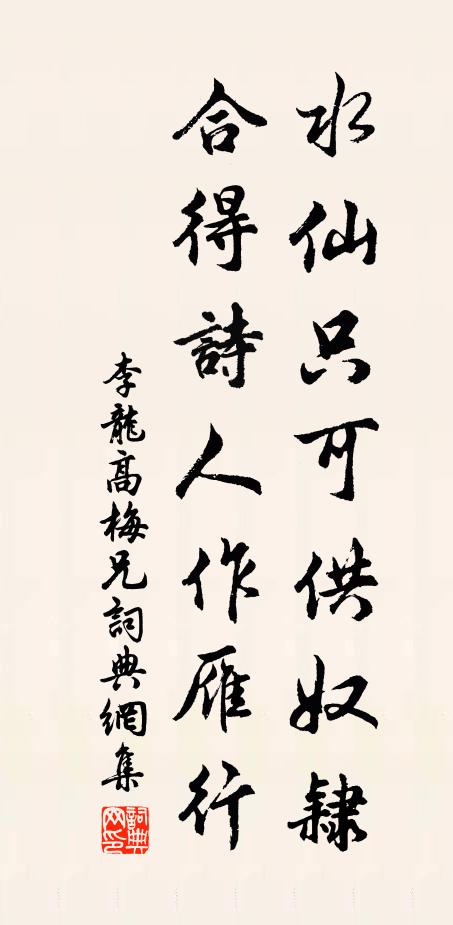 水仙只可供奴隸
合得詩人作雁行
李龍高梅兄詞典網集
詞典网印